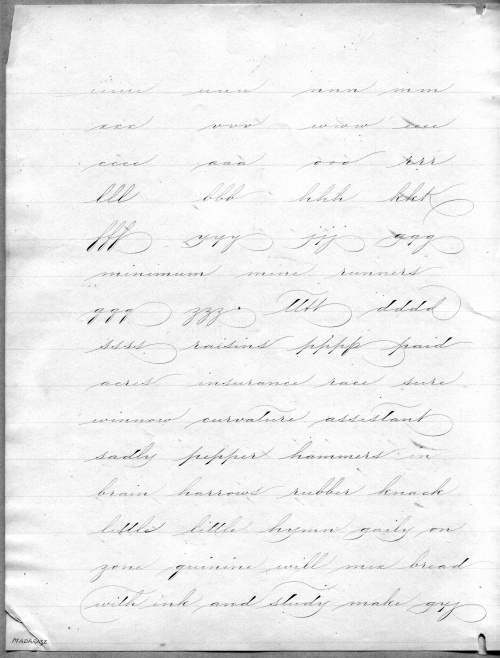 iiiii uuuu nnnn mmm
xxx vvv www eeee
cccc aaa ooo rrr
lll bbb hhh kkk
fff yyy jjj ggg
minimum mine runners
qqq zzz tttt dddd
ssss raisins pppp paid
acres insurance race sure
winnow curvature assistant
sadly pepper hammers in
brain harrows rubber knack
little little hymn gaily on
zone quinine will mix bread
with ink and study make gyz
MADARASZ